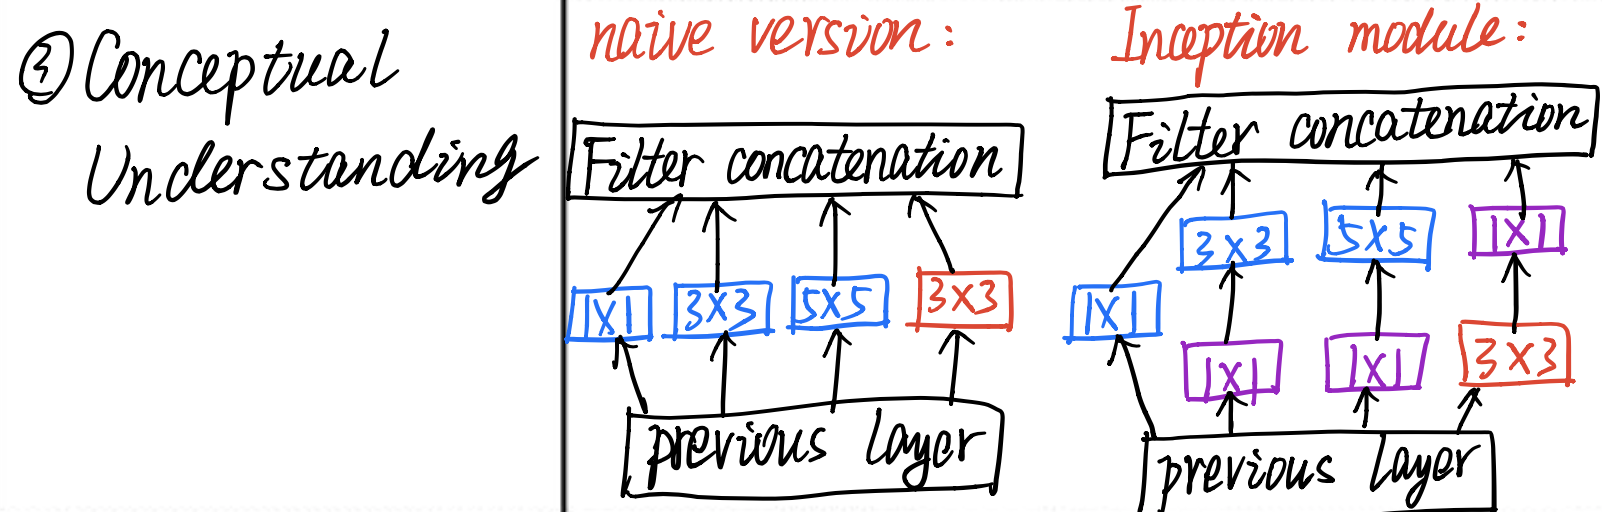 ② Conceptual
Understanding
naive version:
Filter concatenation
1X1 3X3 5X5 3X3
previous layer
Inception module:
Filter concatenation
3X3 5X5 1X1
1X1
1X1 1X1 3X3
previous layer